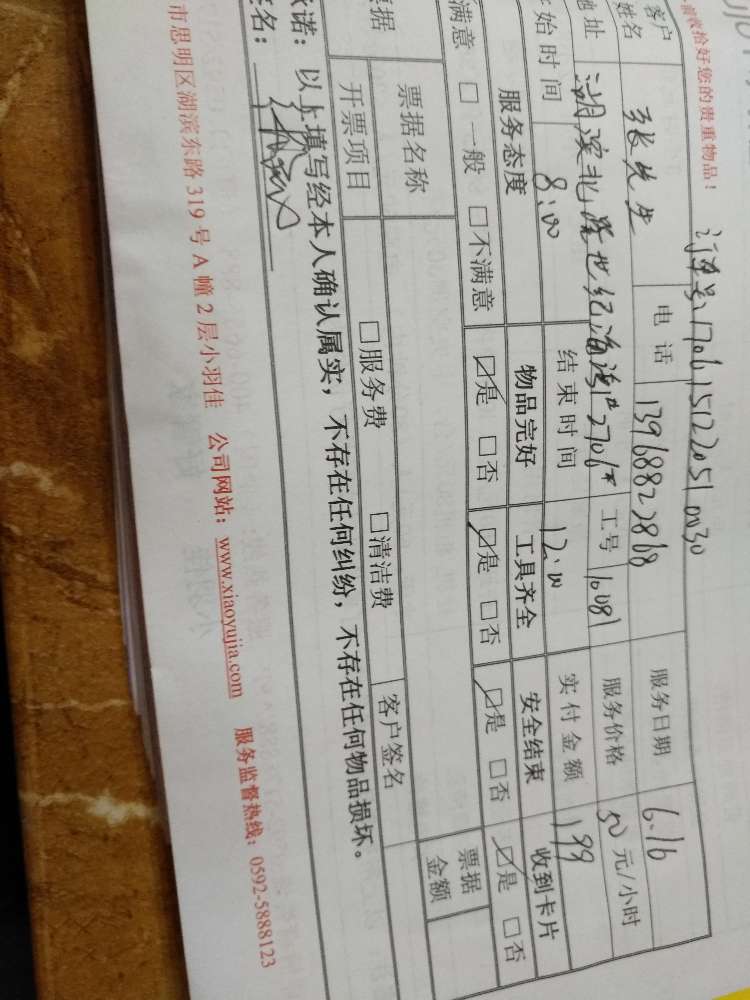 前收拾好您的贵重物品！
订单号：1706151220510030
客户姓名 张先生 电话 13968823868 服务日期 6.16
地址 湖滨北路世纪海湾 2706 工号 16081 服务价格 50 元/小时
始时间 8:00 结束时间 12:00 实付金额 199
服务态度 物品完好 工具齐全 安全结束 收到卡片
满意 □一般 □不满意 ☑是 □否 ☑是 □否 ☑是 □否 ☑是 □否
票据名称 票据金额
据 开票项目 □服务费 □清洁费 客户签名
承诺：以上填写经本人确认属实，不存在任何纠纷，不存在任何物品损坏。
签名：
市思明区湖滨东路 319 号 A 幢 2 层小羽佳 公司网站：www.xiaoyujia.com 服务监督热线：0592-5888123